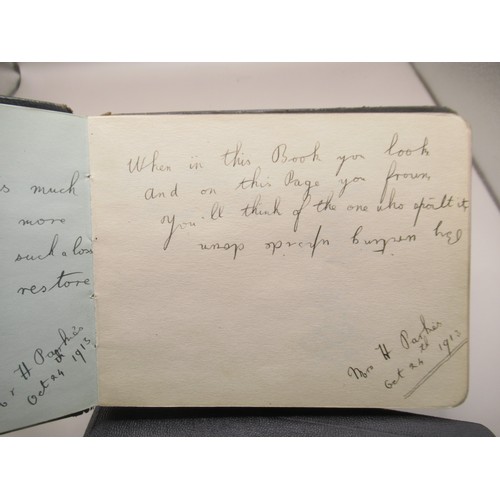 s much
more
such a loss
restore
H Parkes
Oct 24th 1913
When in this Book you look
and on this Page you frown
You'll think of the one who spoilt it
By writing upside down
Mrs H Parkes
Oct 24th 1913